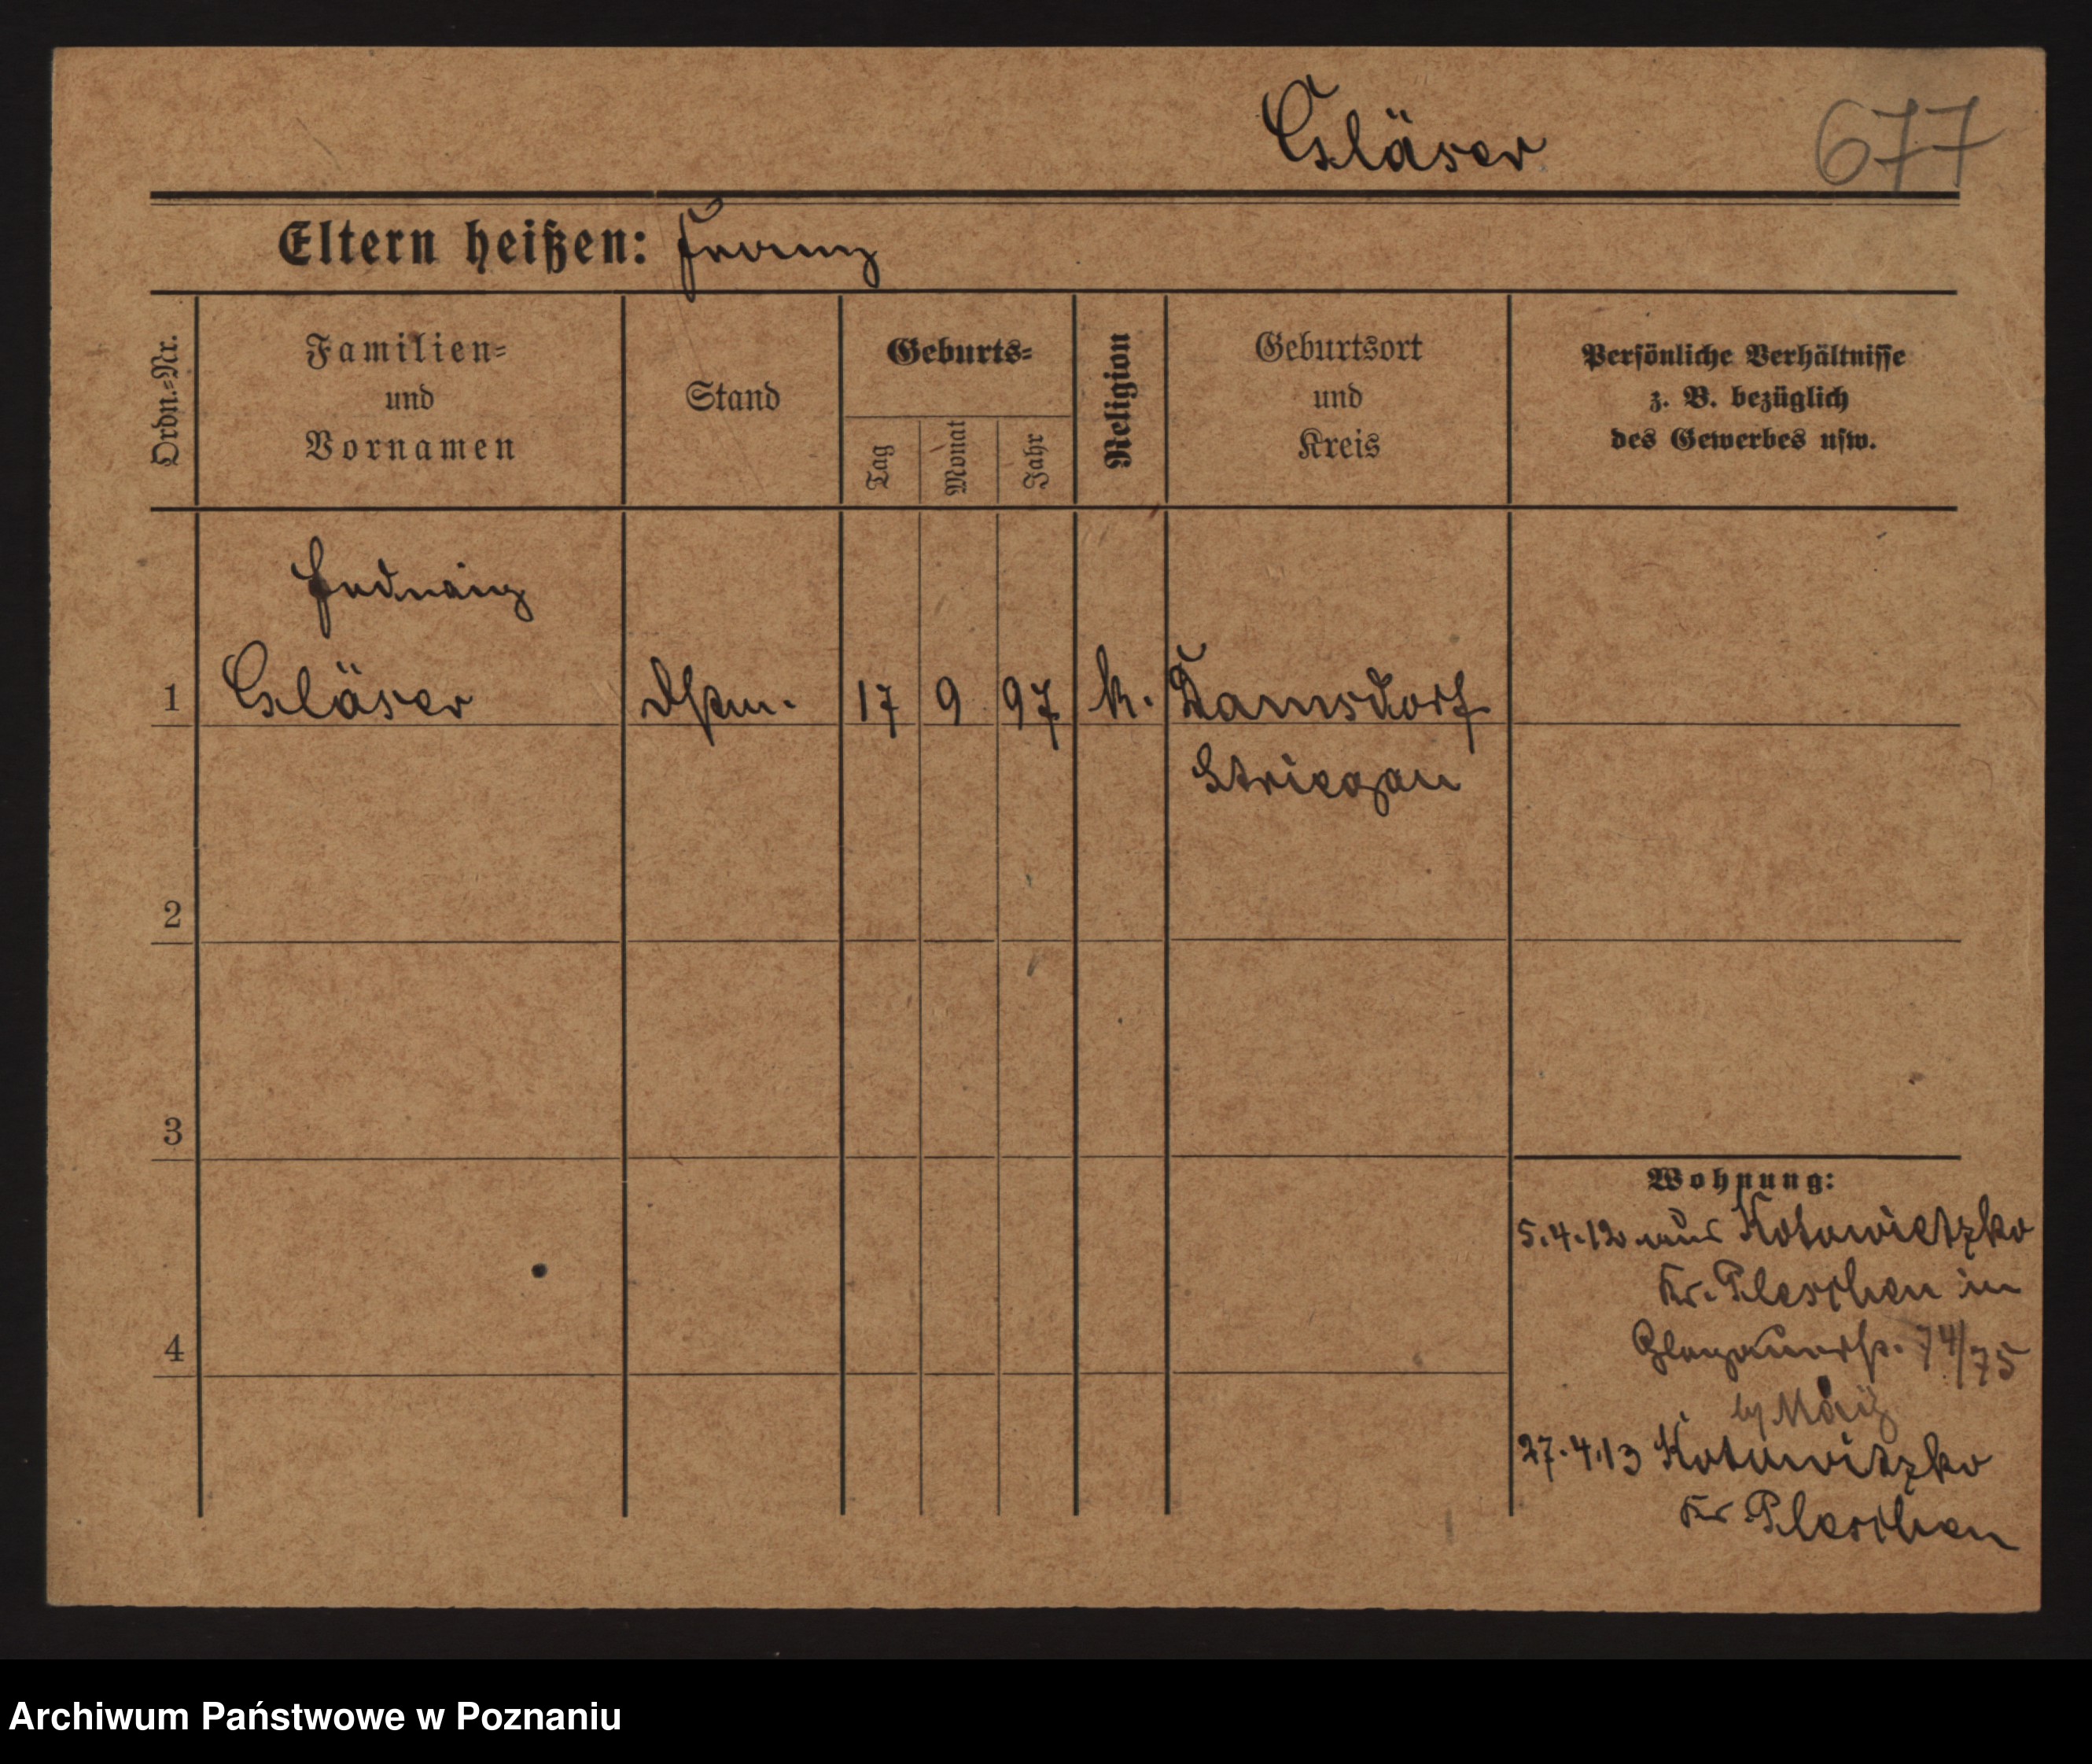 Gläser 677
Eltern heißen: Franz
Ordn.=Nr.
Familien=
und
Vornamen
Stand
Geburts=
Tag
Monat
Jahr
Religion
Geburtsort
und
Kreis
Persönliche Verhältnisse
z. B. bezüglich
des Gewerbes usw.
1 Gläser 17 9 97 k. Damsdorf
Striegau
2
3
4
Wohnung:
5.4.12 aus Kotowietzko
Kr. Pleschen in
Glogauerstr. 74/75
27.4.13 Kotowitzko
Kr Pleschen
Archiwum Państwowe w Poznaniu